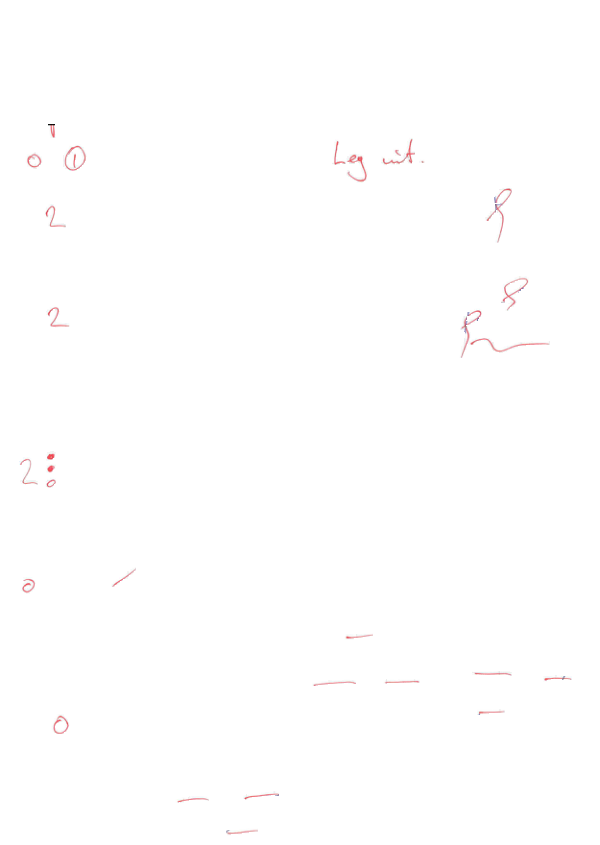 0 1
Leg uit.
2
2
2
0
0